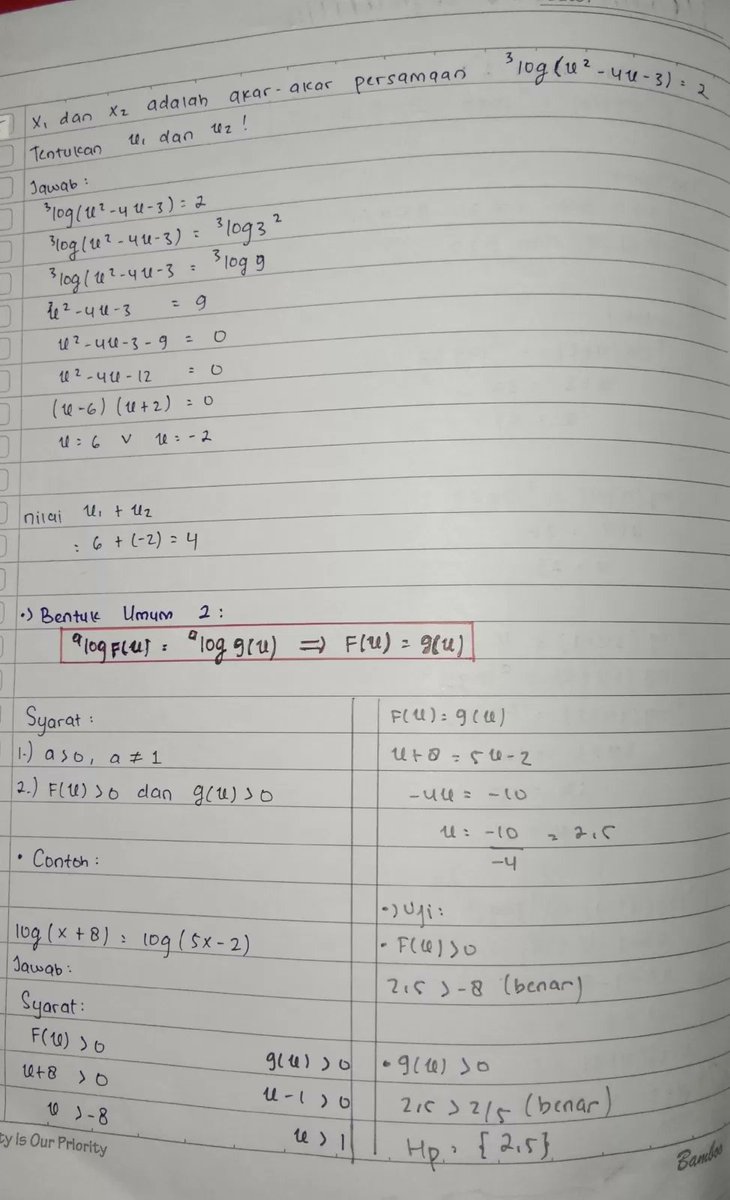 x₁ dan x₂ adalah akar-akar persamaan ³log(x² - 4x - 3) = 2
Tentukan x₁ dan x₂ !
Jawab :
³log(x² - 4x - 3) = 2
³log(x² - 4x - 3) = ³log 3²
³log(x² - 4x - 3 = ³log 9
x² - 4x - 3 = 9
x² - 4x - 3 - 9 = 0
x² - 4x - 12 = 0
(x - 6) (x + 2) = 0
x = 6 v x = -2
nilai x₁ + x₂
= 6 + (-2) = 4
•) Bentuk Umum 2 :
ᵃlog F(x) = ᵃlog g(x) ⟹ F(x) = g(x)
Syarat :
1.) a > 0, a ≠ 1
2.) F(x) > 0 dan g(x) > 0
• Contoh :
log(x + 8) = log(5x - 2)
Jawab :
Syarat :
F(x) > 0
x + 8 > 0
x > -8
g(x) > 0
x - 1 > 0
x > 1
F(x) = g(x)
x + 8 = 5x - 2
-4x = -10
x = -10/-4 = 2,5
•) Uji :
• F(x) > 0
2,5 > -8 (benar)
• g(x) > 0
2,5 > 2/5 (benar)
Hp = {2,5}
ty Is Our Priority
Bamboo